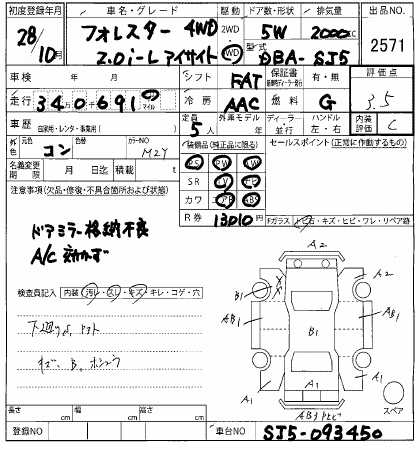 初度登録年月 車名・グレード 駆動 ドア数・形状 排気量 出品NO
28年 10月 フォレスター 4WD 2WD 5W 2000cc 2571
2.0i-L アイサイト 4WD 型式 DBA-SJ5
車検 年 月 シフト FAT 保証書 有・無 評価点
走行 340691 マイル 冷房 AAC 燃料 G 3.5
車歴 自家用・レンタ・事業用( ) 定員 5人 外車モデル 年 ディーラー・並行 ハンドル 左・右 内装評価 C
外色 元色 コン カラーNO M2Y 装備品(純正品に限る) セールスポイント(正常に作動するもの)
名義変更期限 月 日迄 積載 t PS PW
注意事項(欠品・修復・不具合箇所および状態) SR TV
カワ エアB ABS
R券 13010円 Fガラス キズ・ヒビ・ワレ・リペア跡
ドアミラー格納不良
A/C 効かず
検査員記入 内装 汚レ・スレ・キズ・キレ・コゲ・穴
A2
B1 A2
AB1 B1 AB1
A1 A1
スペア
長さ cm 幅 cm 高さ cm
登録NO 車台NO SJ5-093450